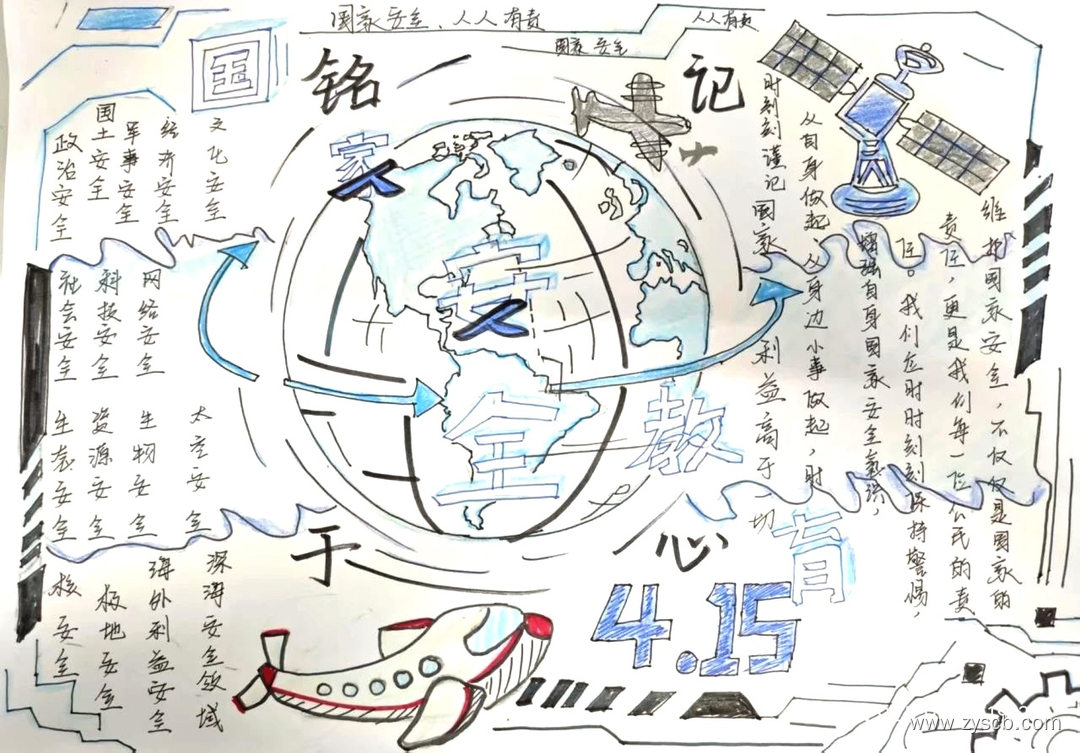 国家安全、人人有责
人人有责
国家安全
铭记于心
国家安全教育
4.15
政治安全
国土安全
军事安全
经济安全
文化安全
社会安全
科技安全
网络安全
生态安全
资源安全
生物安全
太空安全
核安全
极地安全
海外利益安全
深海安全领域
维护国家安全，不仅仅是国家的
责任，更是我们每一位公民的责
任。我们应时时刻刻保持警惕，
增强自身国家安全意识，
从自身做起、从身边小事做起，时
时刻刻谨记国家利益高于一切
www.zyscb.com